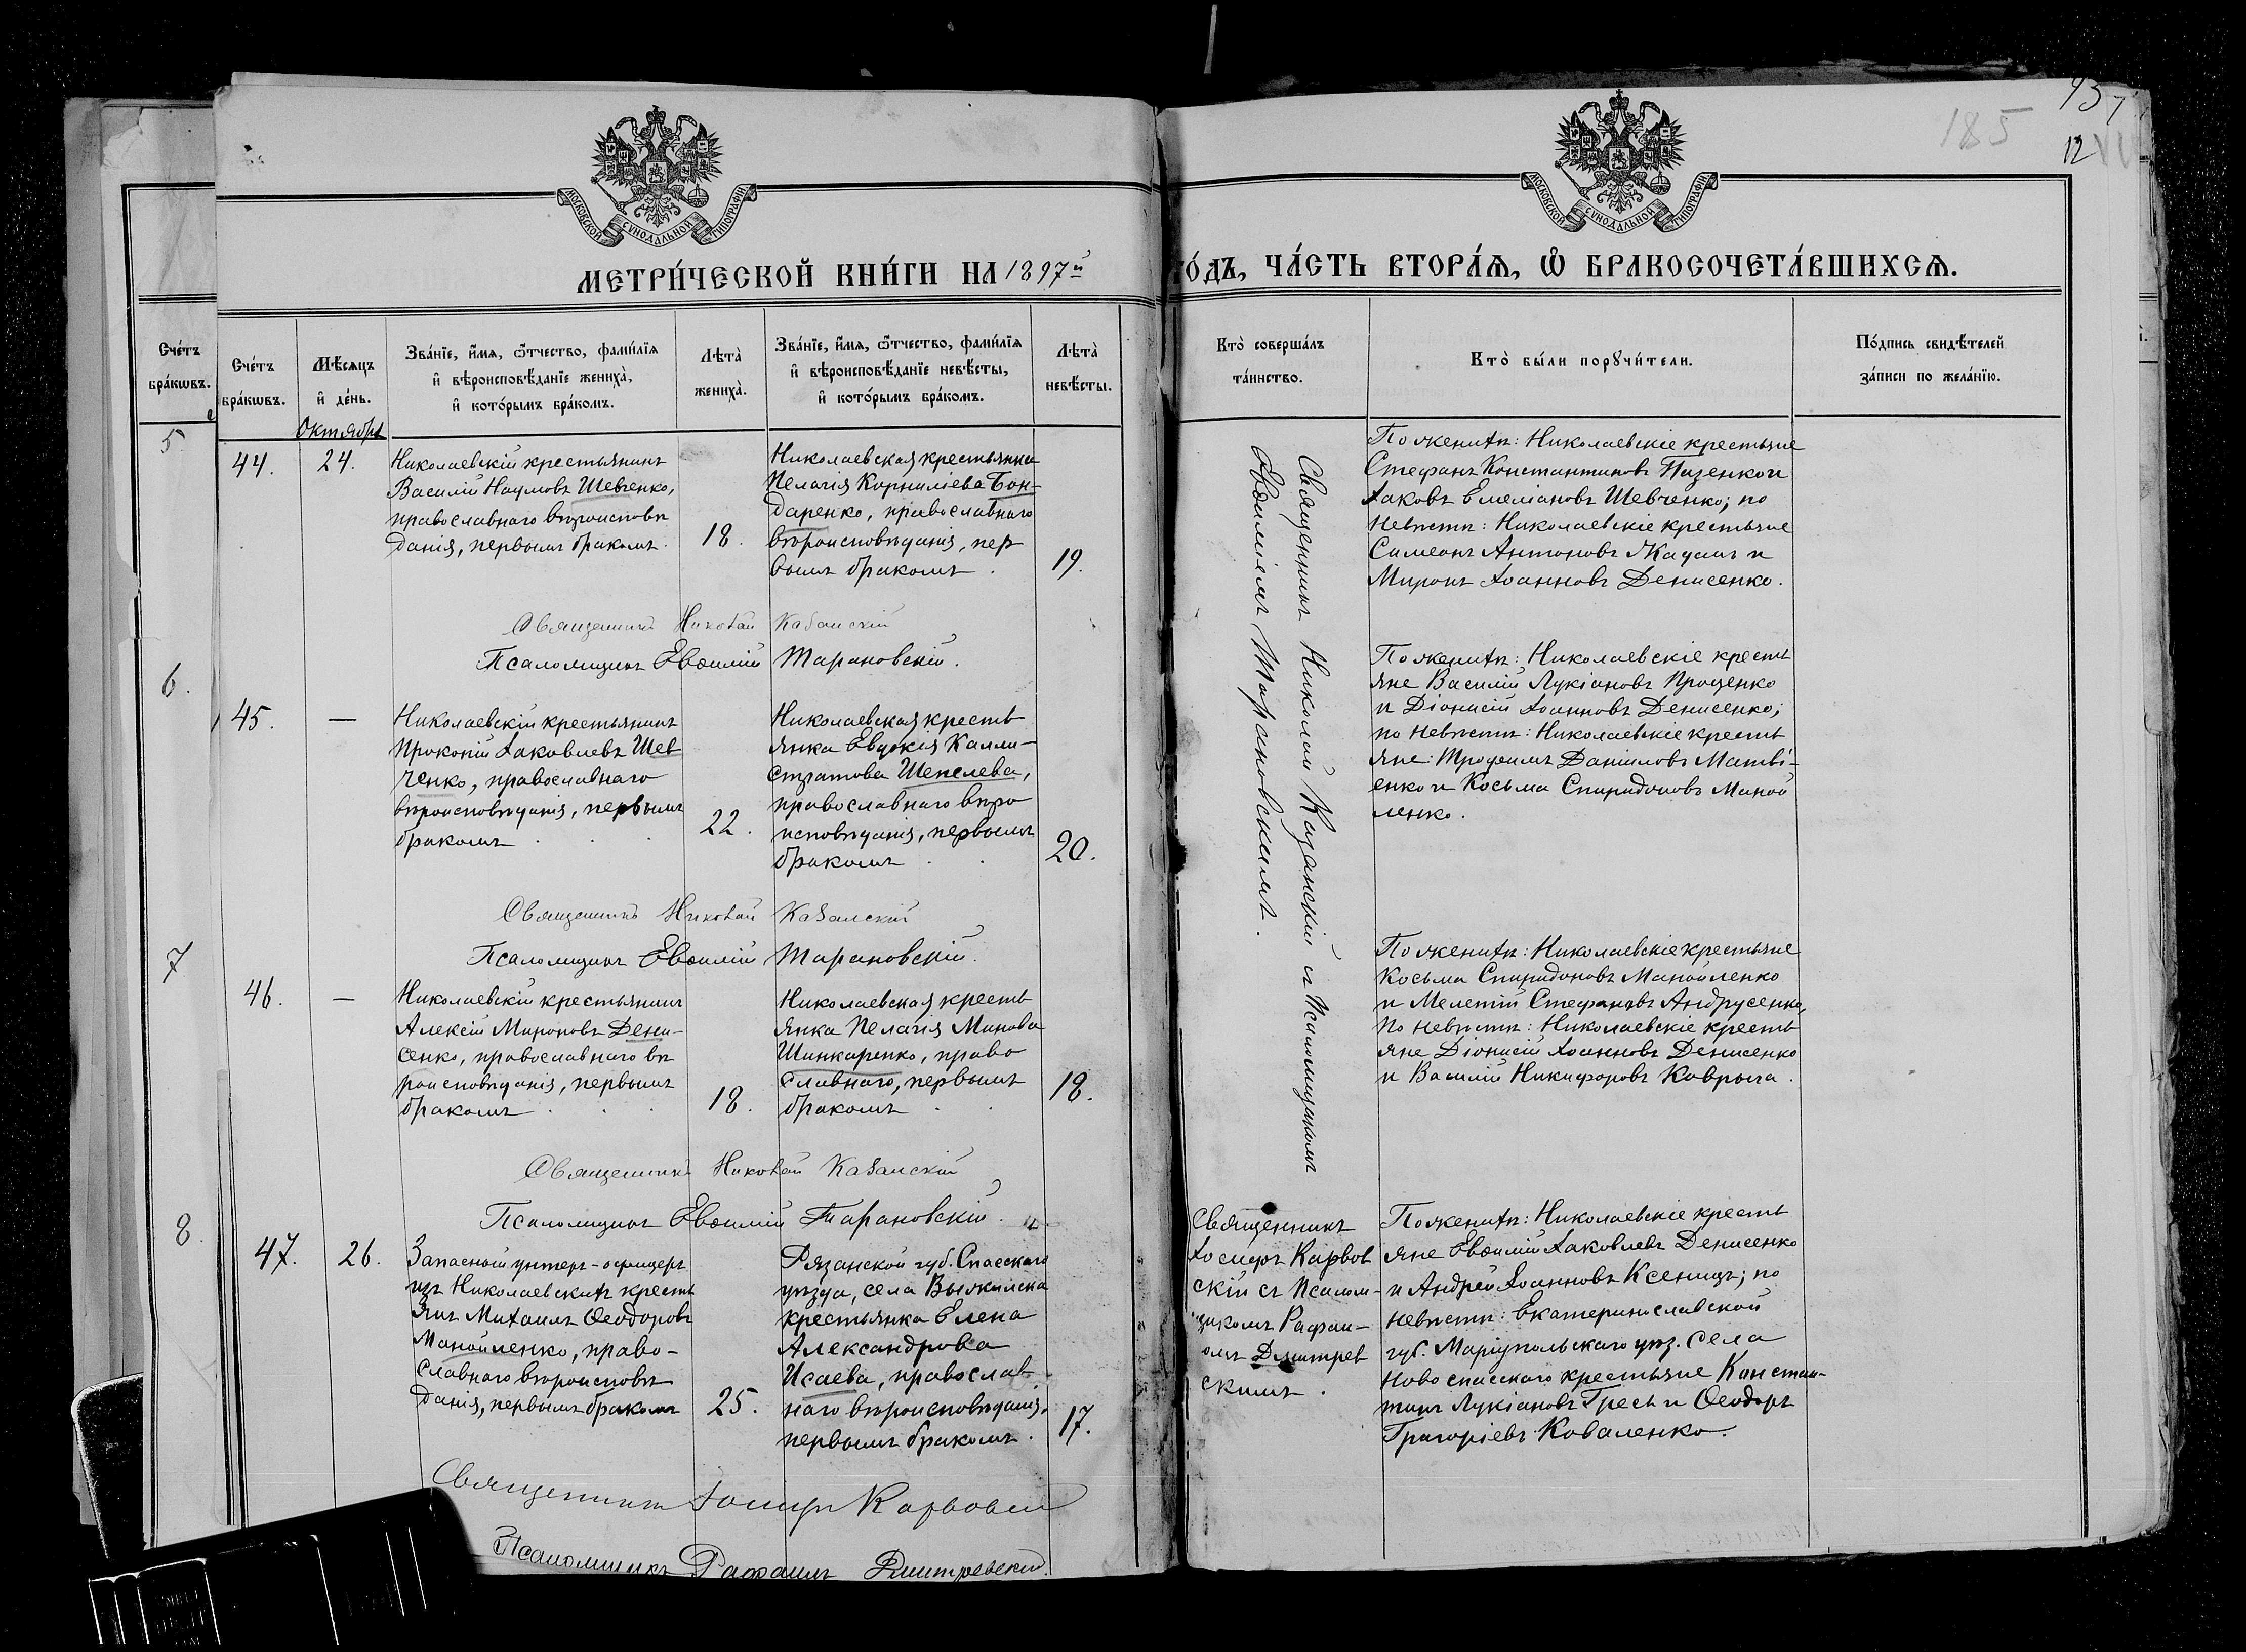 185
12
МОСКОВСКОЙ СѴНОДАЛЬНОЙ ТИПОГРАФІИ
МОСКОВСКОЙ СѴНОДАЛЬНОЙ ТИПОГРАФІИ
МЕТРИ́ЧЕСКОЙ КНИ́ГИ НА 1897й
ГО́ДЪ, ЧА́СТЬ ВТОРА́Ѧ, Ѡ҆ БРАКОСОЧЕТА́ВШИХСѦ.
Сче́тъ
бра́кѡвъ.
5.
6.
7
8.
Сче́тъ
бра́кѡвъ.
Мѣ́сяцъ
и҆ де́нь.
Зва́нїе, и҆́мя, ѻ҆́тчество, фамѝлїя
и҆ вѣроисповѣ́данїе жениха̀,
и҆ кото́рымъ бра́комъ.
Лѣта̀
жениха̀.
Зва́нїе, и҆́мя, ѻ҆́тчество, фамѝлїя
и҆ вѣроисповѣ́данїе невѣ́сты,
и҆ кото́рымъ бра́комъ.
Лѣта̀
невѣ́сты.
Кто̀ соверша́лъ
та́инство.
Кто̀ бы́ли порꙋчи́тели.
По́дпись свидѣ́телей
за́писи по жела́нїю.
Октября
44.
24.
Николаевскій крестьянинъ
Василій Наумовъ Шевченко,
православнаго вѣроисповѣ
данія, первымъ бракомъ.
18.
Николаевская крестьянка
Пелагія Корниліева Бон-
даренко, православнаго
вѣроисповѣданія, пер
вымъ бракомъ.
19.
Священникъ Николай Казанскій и Псаломщикомъ
Евѳиміемъ Тарановскимъ.
По женихѣ: Николаевскіе крестьяне
Стефанъ Константиновъ Пазенко и
Іаковъ Емеліановъ Шевченко; по
невѣстѣ: Николаевскіе крестьяне
Симеонъ Антоновъ Жаданъ и
Миронъ Іоанновъ Денисенко.
Священникъ Николай Казанскій
Псаломщикъ Евѳимій Тарановскій.
45.
—
Николаевскій крестьянинъ
Прокопій Іаковлевъ Шев
ченко, православнаго
вѣроисповѣданія, первымъ
бракомъ
22.
Николаевская кресть
янка Евдокія Калли-
стратова Шепелева,
православнаго вѣро
исповѣданія, первымъ
бракомъ
20.
По женихѣ: Николаевскіе кресть
яне Василій Лукіановъ Проценко
и Діонисій Іоанновъ Денисенко;
по невѣстѣ: Николаевскіе кресть
яне: Трофимъ Даніиловъ Матві-
енко и Косьма Спиридоновъ Маной
ленко.
Священникъ Николай Казанскій
Псаломщикъ Евѳимій Тарановскій.
46.
—
Николаевскій крестьянинъ
Алексій Мироновъ Дени-
сенко, православнаго вѣ
роисповѣданія, первымъ
бракомъ
18.
Николаевская кресть
янка Пелагія Минова
Шинкаренко, право
славнаго, первымъ
бракомъ
18.
По женихѣ: Николаевскіе крестьяне
Косьма Спиридоновъ Манойленко
и Мелетій Стефановъ Андрусенко,
по невѣстѣ: Николаевскіе кресть
яне Діонисій Іоанновъ Денисенко
и Василій Никифоровъ Коврыга.
Священникъ Николай Казанскій
Псаломщикъ Евѳимій Тарановскій.
47.
26.
Запасный унтеръ-офицеръ
изъ Николаевскихъ кресть
янъ Михаилъ Ѳеодоровъ
Манойленко, право-
славнаго вѣроисповѣ
данія, первымъ бракомъ
25.
Рязанской губ. Спасскаго
уѣзда, села
крестьянка Елена
Александрова
Исаева, православ
наго вѣроисповѣданія,
первымъ бракомъ.
17.
Священникъ
Іосифъ Карвов
скій съ Псалом-
щикомъ Рафаи-
ломъ Дмитрев
скимъ.
По женихѣ: Николаевскіе кресть
яне Евѳимій Іаковлевъ Денисенко
и Андрей Іоанновъ Ксеницъ; по
невѣстѣ: Екатеринославской
губ. Маріупольскаго уѣз. села
Новоспасскаго крестьяне Констан-
тинъ Лукіановъ Гресь и Ѳеодоръ
Григоріевъ Коваленко.
Священникъ Іосифъ Карвовскій
Псаломщикъ Рафаилъ Дмитревскій.